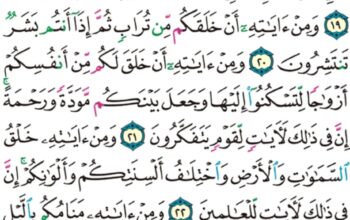 ١٩ وَمِنْ ءَايَٰتِهِۦٓ أَنْ خَلَقَكُم مِّن تُرَابٍ ثُمَّ إِذَآ أَنتُم بَشَرٌ
تَنتَشِرُونَ ٢٠ وَمِنْ ءَايَٰتِهِۦٓ أَنْ خَلَقَ لَكُم مِّنْ أَنفُسِكُمْ
أَزْوَٰجًا لِّتَسْكُنُوٓا۟ إِلَيْهَا وَجَعَلَ بَيْنَكُم مَّوَدَّةً وَرَحْمَةً ۚ
إِنَّ فِى ذَٰلِكَ لَءَايَٰتٍ لِّقَوْمٍ يَتَفَكَّرُونَ ٢١ وَمِنْ ءَايَٰتِهِۦ خَلْقُ
ٱلسَّمَٰوَٰتِ وَٱلْأَرْضِ وَٱخْتِلَٰفُ أَلْسِنَتِكُمْ وَأَلْوَٰنِكُمْ ۚ إِنَّ
فِى ذَٰلِكَ لَءَايَٰتٍ لِّلْعَٰلِمِينَ ٢٢ وَمِنْ ءَايَٰتِهِۦ مَنَامُكُم بِٱلَّيْلِ